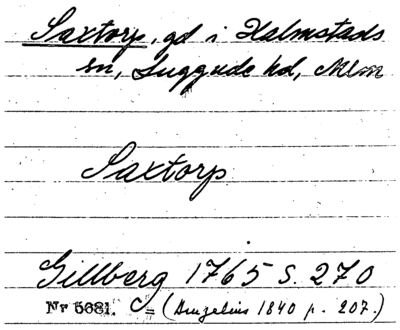 Saxtorp, gd i Halmstads
sn, Luggude hd, Mlm
Saxtorp
Gillberg 1765 s. 270
Nr 5681. = (Bruzelius 1840 p. 207.)